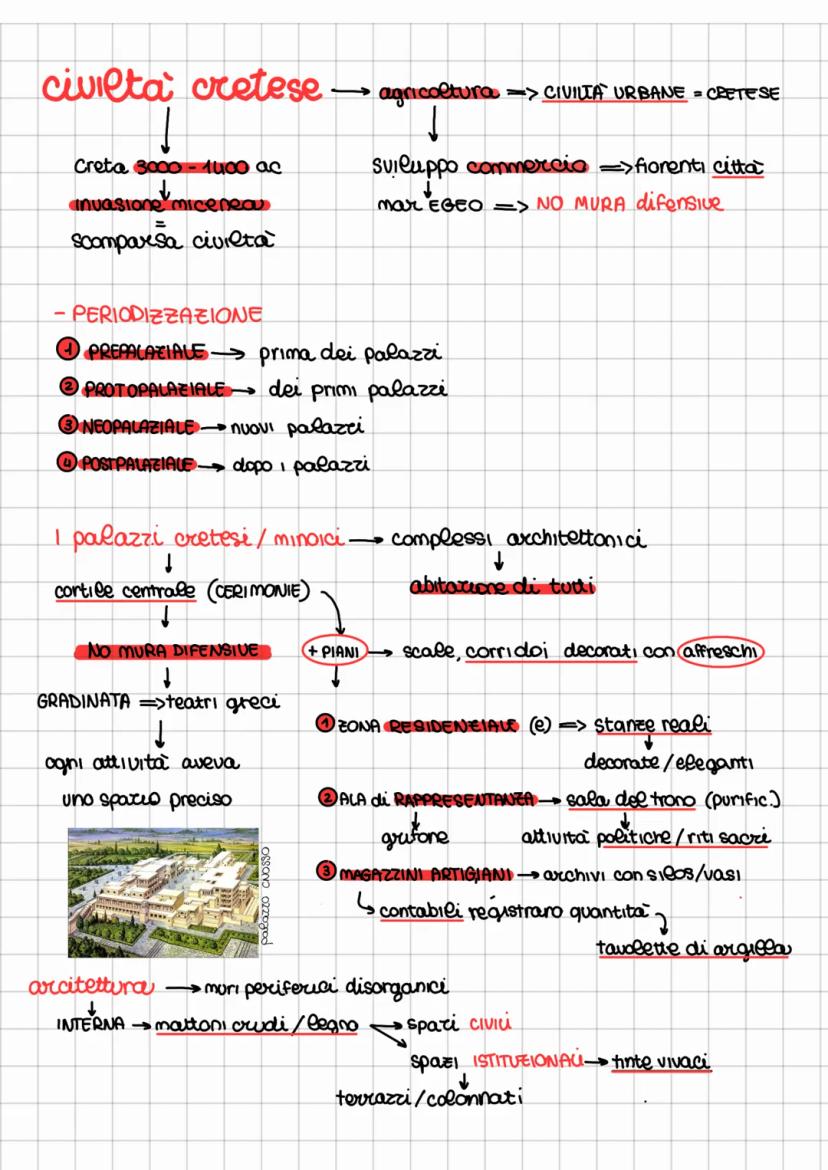 civiltà cretese → agricoltura => CIVILTÀ URBANE = CRETESE
Creta 3000 - 1400 ac
sviluppo commercio => fiorenti città
invasione micenea
mar EGEO => NO MURA difensive
=
scomparsa civiltà
- PERIODIZZAZIONE
1 PREPALAZIALE → prima dei palazzi
2 PROTOPALAZIALE → dei primi palazzi
3 NEOPALAZIALE → nuovi palazzi
4 POSTPALAZIALE → dopo i palazzi
I palazzi cretesi / minoici → complessi architettonici
cortile centrale (CERIMONIE)
abitazione di tutti
NO MURA DIFENSIVE
+ PIANI → scale, corridoi decorati con affreschi
GRADINATA => teatri greci
1 ZONA RESIDENZIALE (e) => stanze reali
ogni attività aveva
decorate / eleganti
uno spazio preciso
2 ALA di RAPPRESENTANZA → sala del trono (purific.)
grifone
attività politiche / riti sacri
palazzo cnosso
3 MAGAZZINI ARTIGIANI → archivi con silos/vasi
contabili registrano quantità
tavolette di argilla
arcitettura → muri periferici disorganici
INTERNA → mattoni crudi / legno → spazi CIVILI
spazi ISTITUZIONALI → tinte vivaci
terrazzi / colonnati